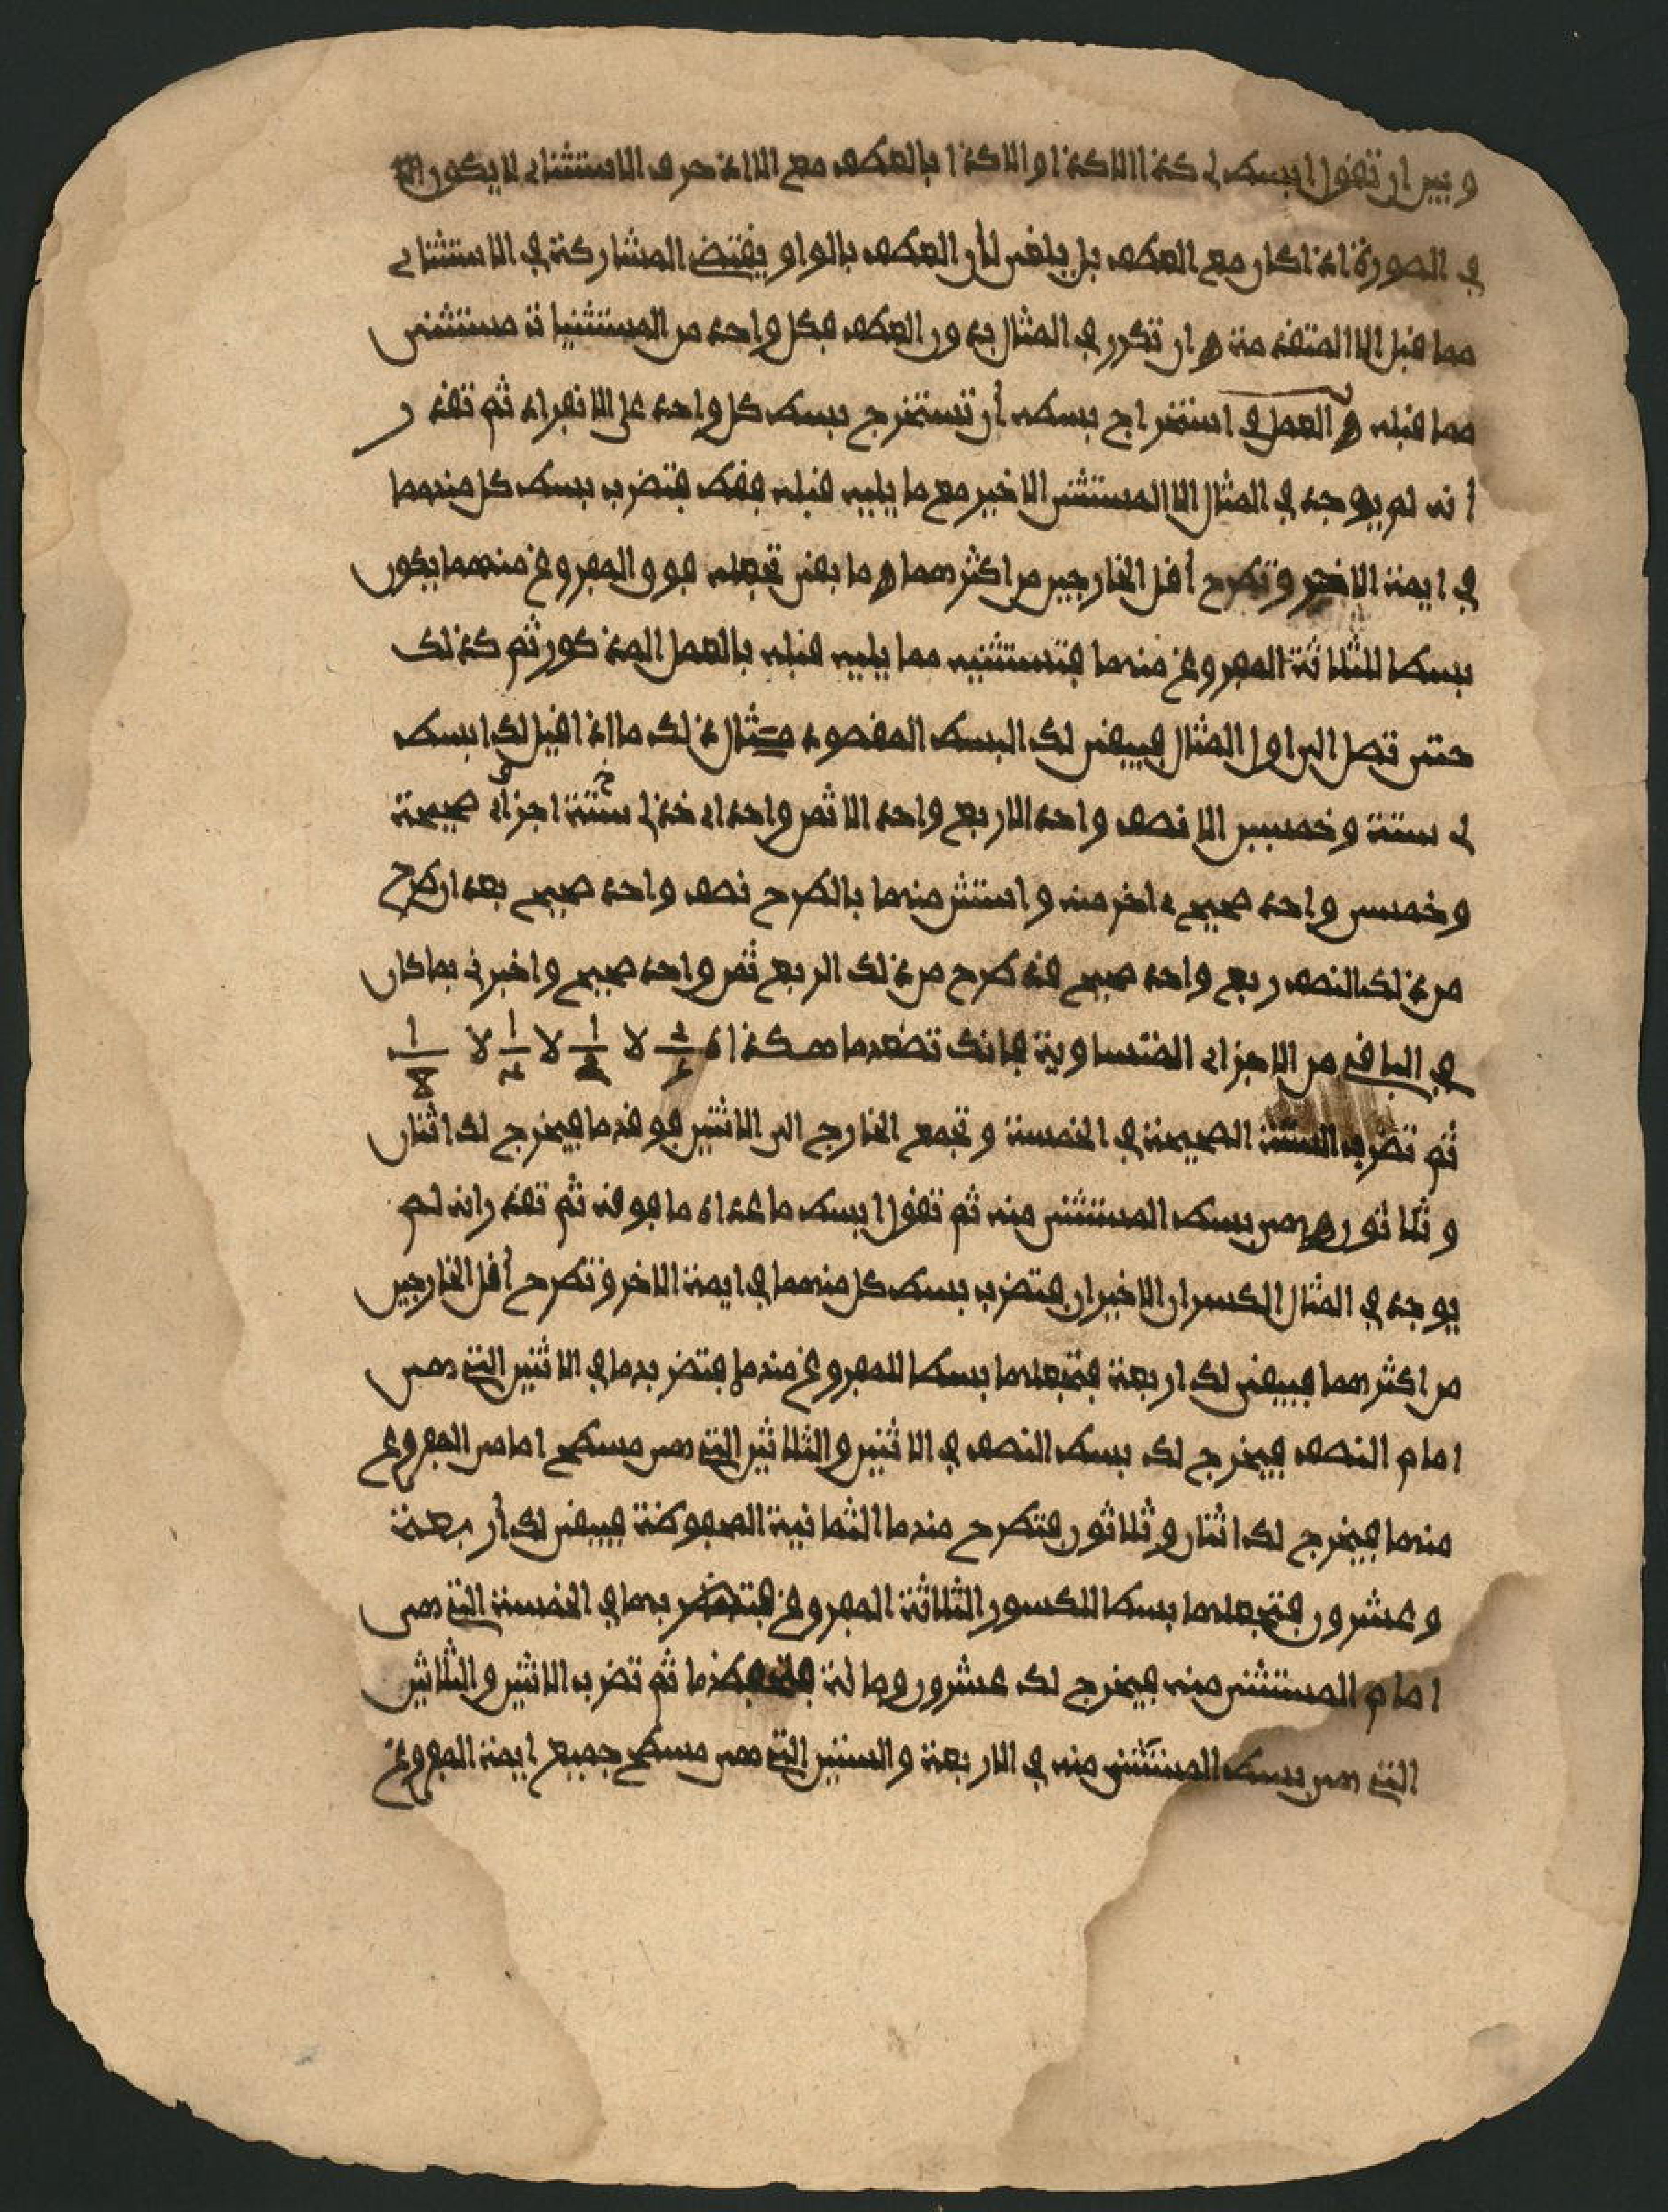 وبين ان تقول ابسط لي كذا الا كذا والا كذا بالعطف مع الا اذ حرف الاستثناء لا يكون الا
في الصورة اذا كان مع العطف بل يلغى لأن العطف بالواو يقتضي المشاركة في الاستثناء
مما قبل الا المتقدمة وان تكرر في المثال بدون العطف فكل واحد من المستثنيات مستثنى
مما قبله والعمل في استخراج بسطه أن تستخرج بسط كل واحد على الانفراد ثم تقدر
أنه لم يوجد في المثال الا المستثنى الاخير مع ما يليه قبله فقط فتضرب بسط كل منهما
في ايمة الاخر وتطرح أقل الخارجين من اكثرهما وما بقى تجعله فوق المفروغ منهما يكون
بسطا للثلاثة المفروغ منهما فتستثنيه مما يليه قبله بالعمل المذكور ثم كذلك
حتى تصل الى اول المثال فيبقى لك البسط المقصود مثال ذلك ما اذا قيل لك ابسط
لي ستة وخمسين الا نصف واحد الا ربع واحد الا ثمن واحد اى خذ لي ستة اجزاء صحيحة
وخمس واحد صحيح ءاخر منه واستثن منها بالطرح نصف واحد صحيح بعد ان طرح
من ذلك النصف ربع واحد صحيح قد طرح من ذلك الربع ثمن واحد صحيح واخبرني بما كان
في الباقي من الاجزاء المتساوية فانك تضعها هكذا
ثم تضرب الستة الصحيحة في الخمسة وتجمع الخارج الى الاثنين فوقها فيخرج لك اثنان
وثلاثون وهي بسط المستثنى منه ثم تقول ابسط ما عداه ما فوقه ثم تقدر انه لم
يوجد في المثال الكسران الاخيران فتضرب بسط كل منهما في ايمة الاخر وتطرح أقل الخارجين
من اكثرهما فيبقى لك اربعة فتجعلها بسطا للمفروغ منها فتضربها في الاثنين التي هي
امام النصف فيخرج لك بسط النصف في الاثنين والثلاثين التي هي مسطح امامي المفروغ
منها فيخرج لك اثنان وثلاثون فتطرح منها الثمانية المحفوظة فيبقى لك أربعة
وعشرون فتجعلها بسطا للكسور الثلاثة المفروغ فتضربها في الخمسة التي هي
امام المستثنى منه فيخرج لك عشرون ومائة فاحفظها ثم تضرب الاثنين والثلاثين
التي هي بسط المستثنى منه في الاربعة والستين التي هي مسطح جميع ايمة المفروغ